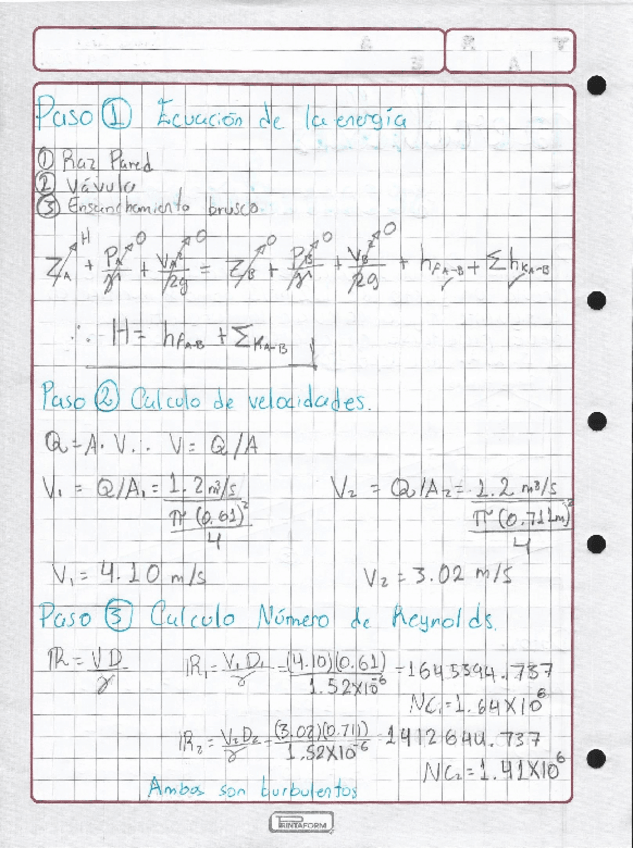 Paso ① Ecuación de la energía
① Raz Pared
② Vávula
③ Ensanchamiento brusco.
Z_A^H + P_A/γ^0 + V_A²/2g^0 = Z_B^0 + P_B/γ^0 + V_B²/2g^0 + h_fA-B + Σh_KA-B
∴ H = h_fA-B + Σ_KA-B
Paso ② Calculo de velocidades.
Q = A · V ∴ V = Q/A
V₁ = Q/A₁ = 1.2 m³/s / (π(0.61)²/4) V₂ = Q/A₂ = 1.2 m³/s / (π(0.711m)²/4)
V₁ = 4.10 m/s V₂ = 3.02 m/s
Paso ③ Calculo Número de Reynolds.
IR = VD/γ IR₁ = V₁D₁/γ = (4.10)(0.61)/1.52x10⁻⁶ = 1645394.737
NC₁ = 1.64x10⁶
IR₂ = V₂D₂/γ = (3.02)(0.711)/1.52x10⁻⁶ = 1412644.737
NC₂ = 1.41x10⁶
Ambos son turbulentos
PRINTAFORM